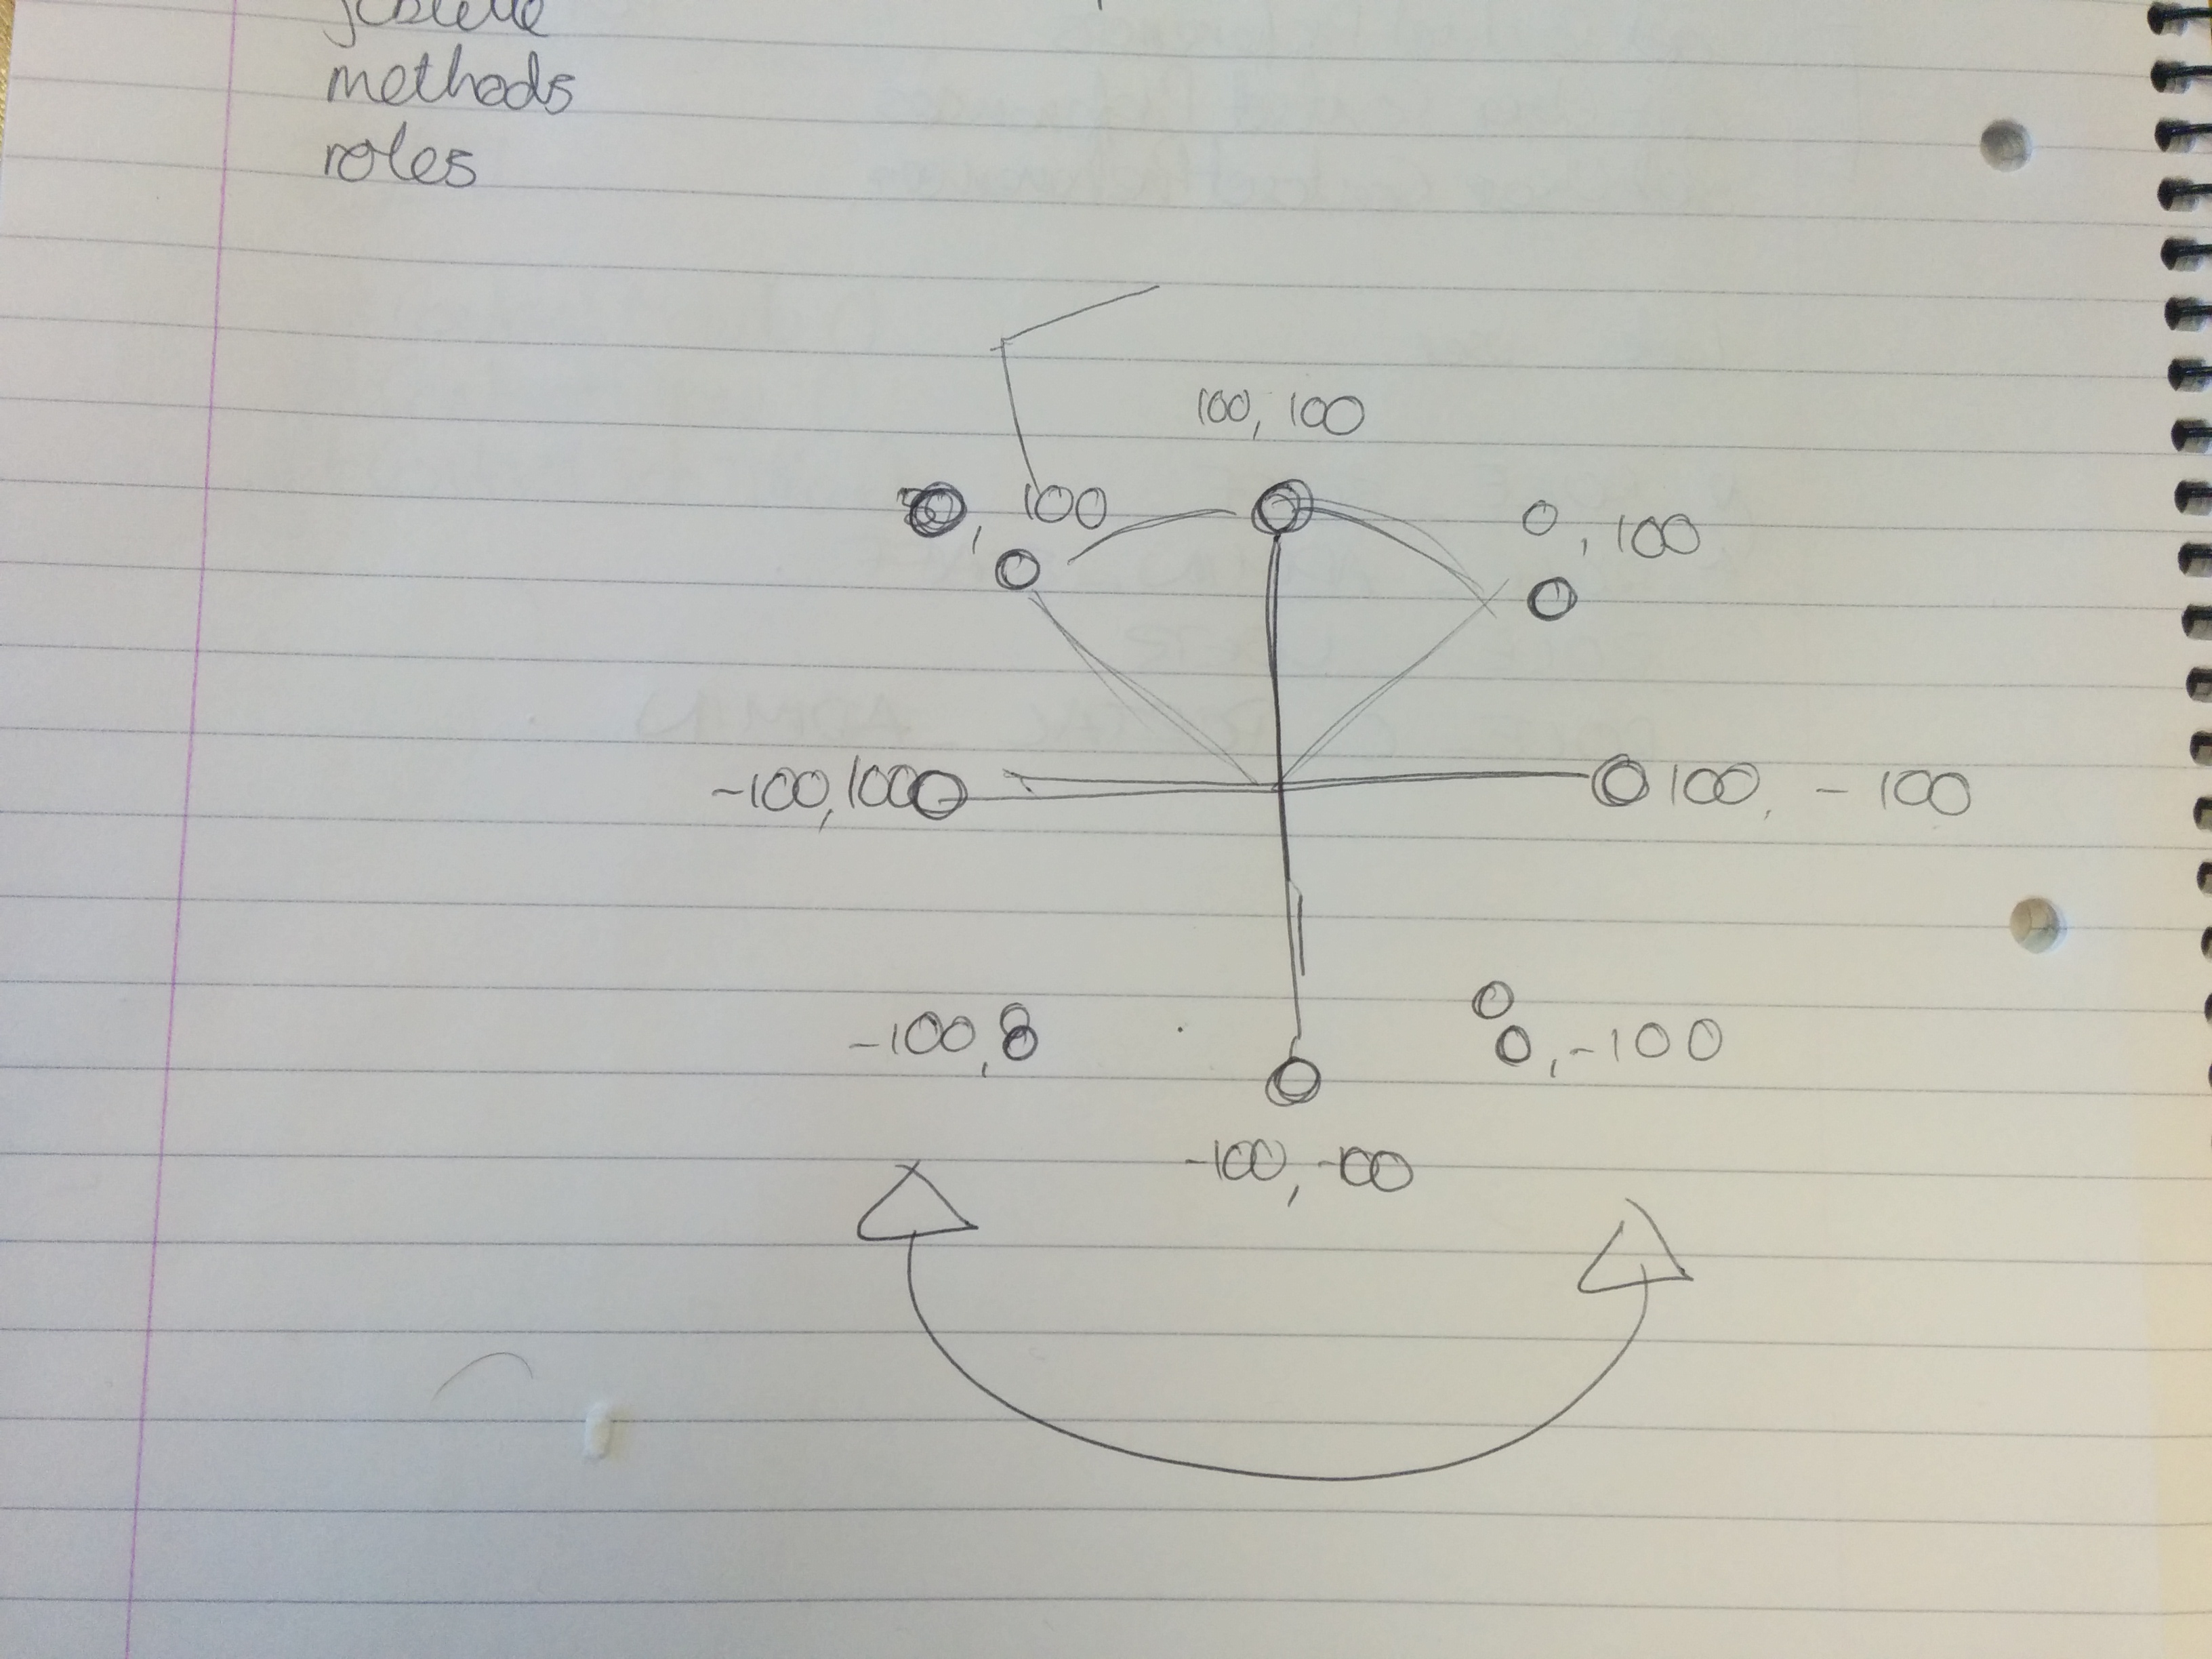 methods
roles
100, 100
, 100
0, 100
-100,100
100, -100
-100,8
0,-100
-100, -100